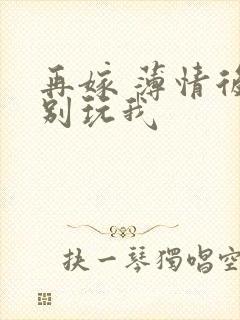 再嫁 薄情後
别玩我
抉一琴獨唱空